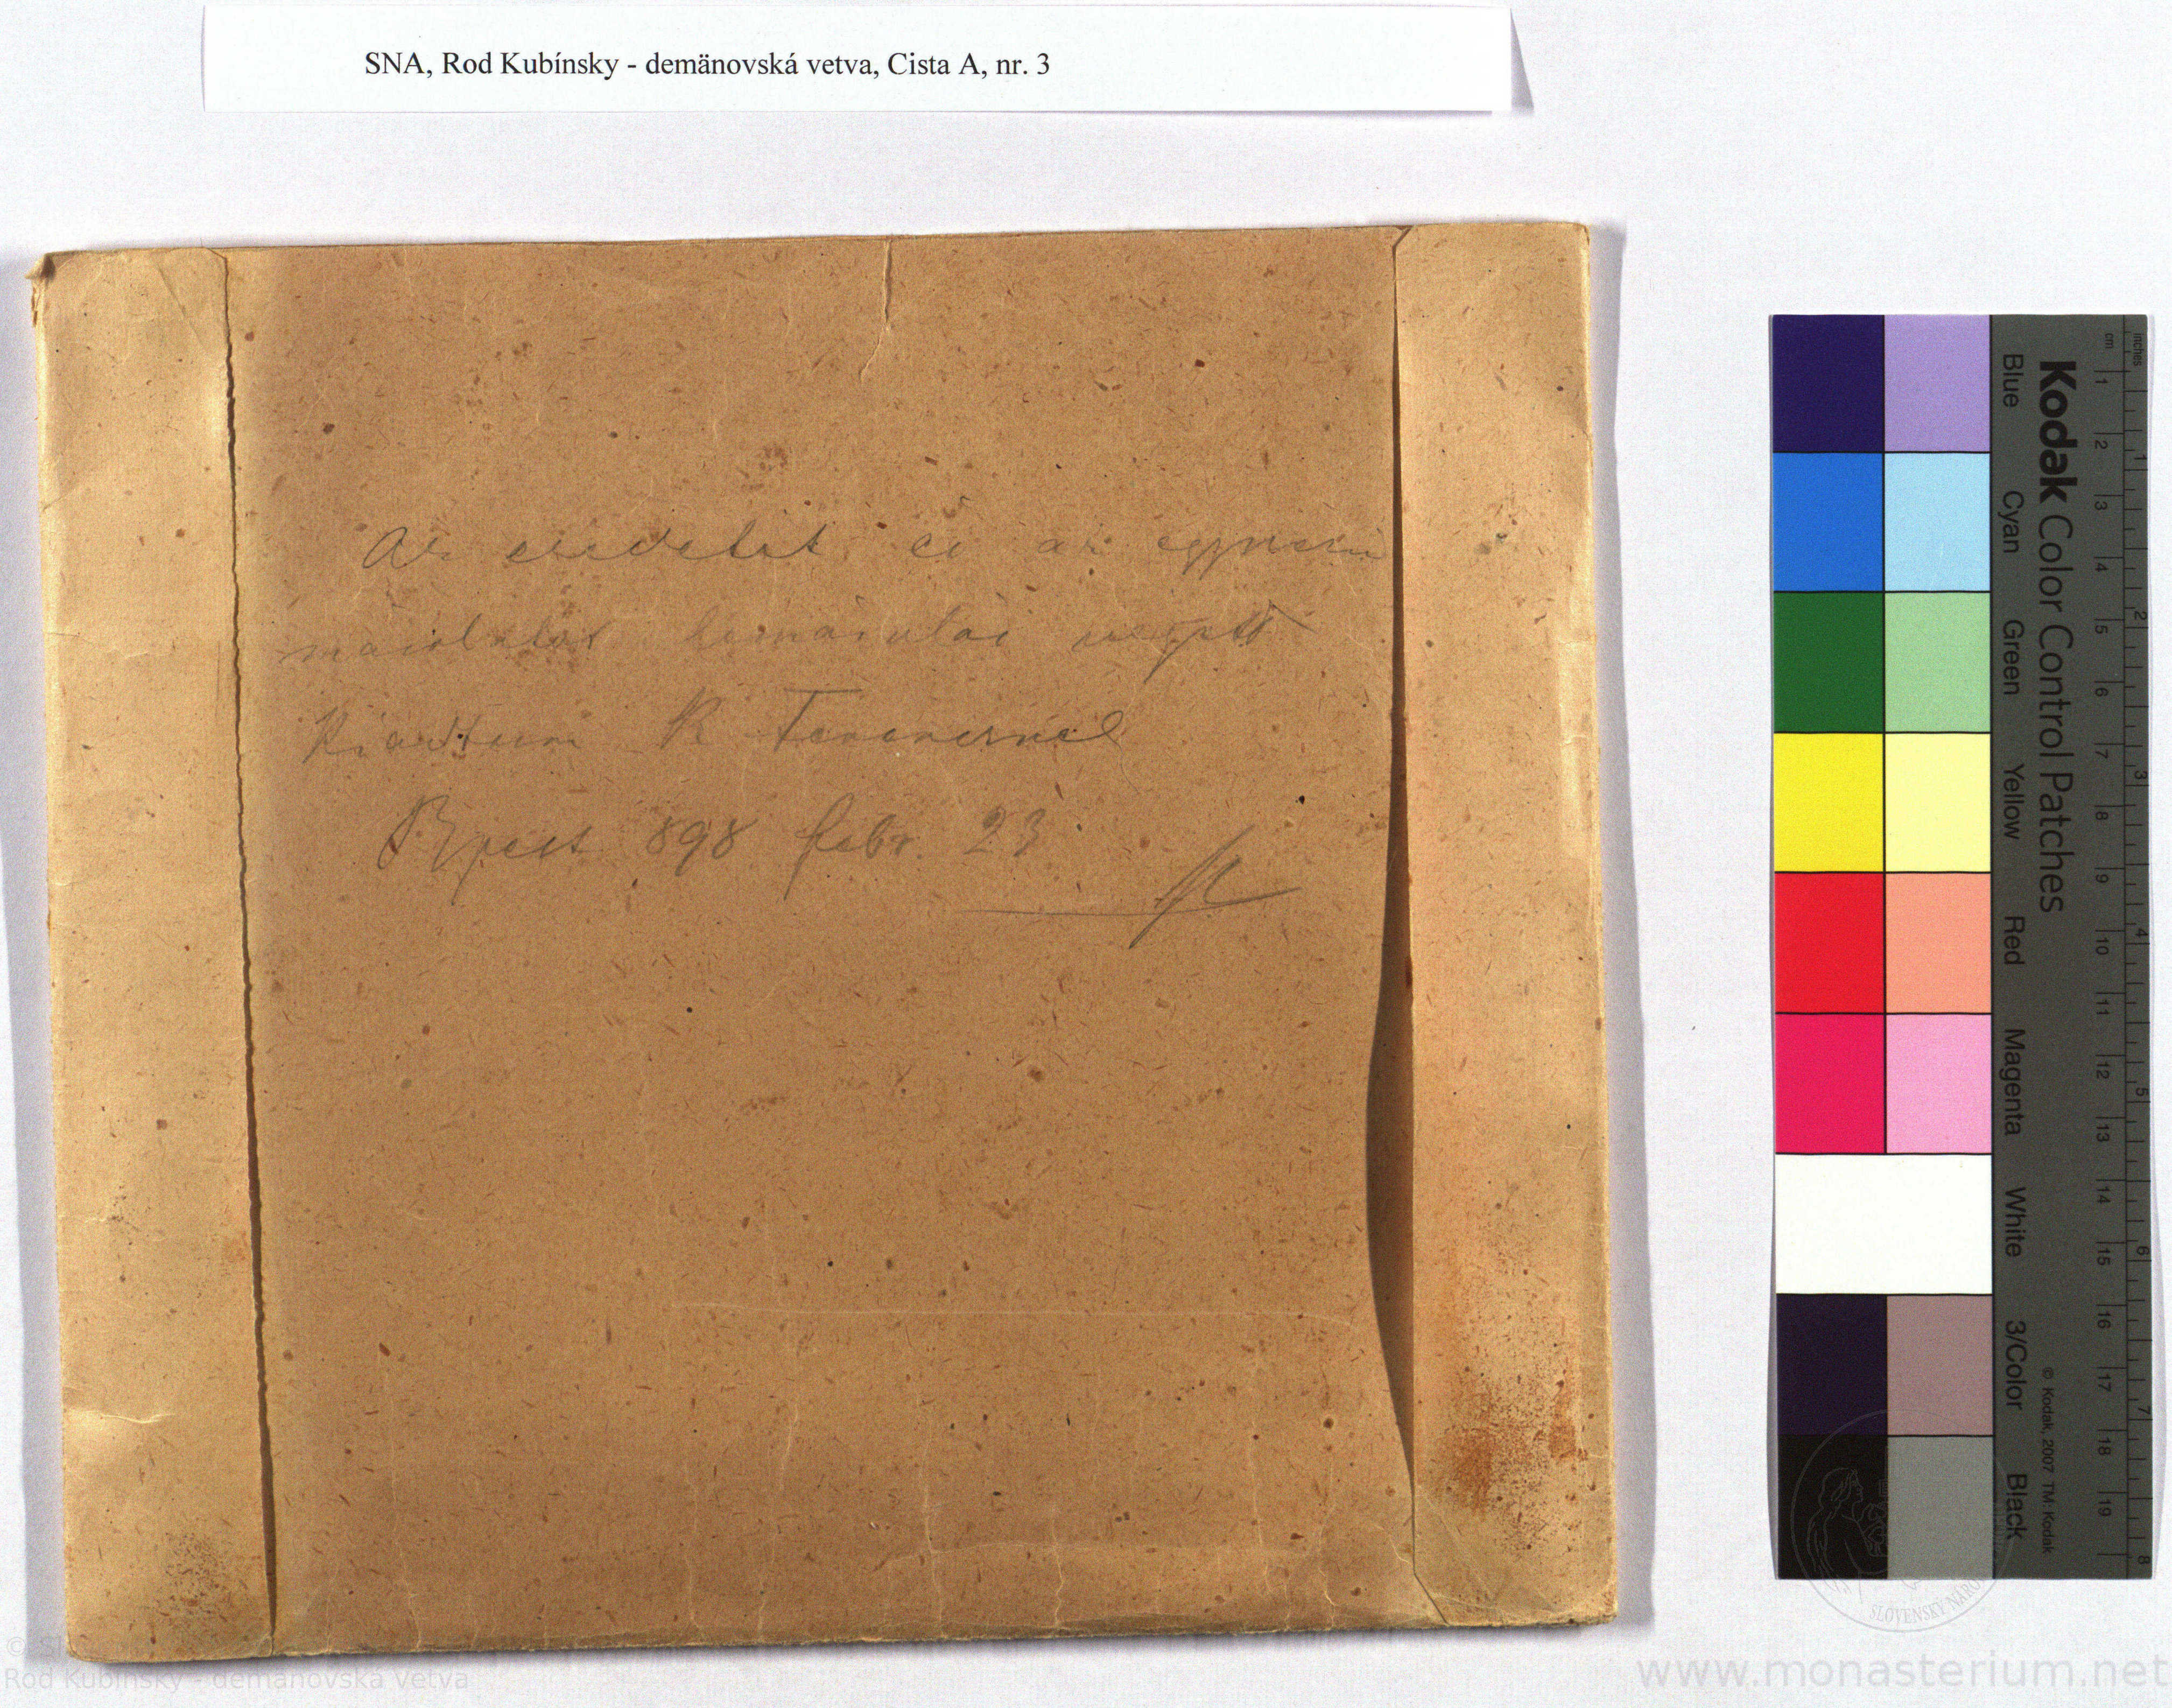 SNA, Rod Kubínsky - demänovská vetva, Cista A, nr. 3
Az eredetit és az egyszerű
másolatot lemásolás végett
Kiadtam K
Bpest 898 febr. 23
Kodak Color Control Patches
Blue Cyan Green Yellow Red Magenta White 3/Color Black
inches 1 2 3 4 5 6 7 8
cm 1 2 3 4 5 6 7 8 9 10 11 12 13 14 15 16 17 18 19
© Kodak, 2007 TM: Kodak
SLOVENSKÝ NÁRO
Rod Kubínsky - demänovská Vetva
www.monasterium.net